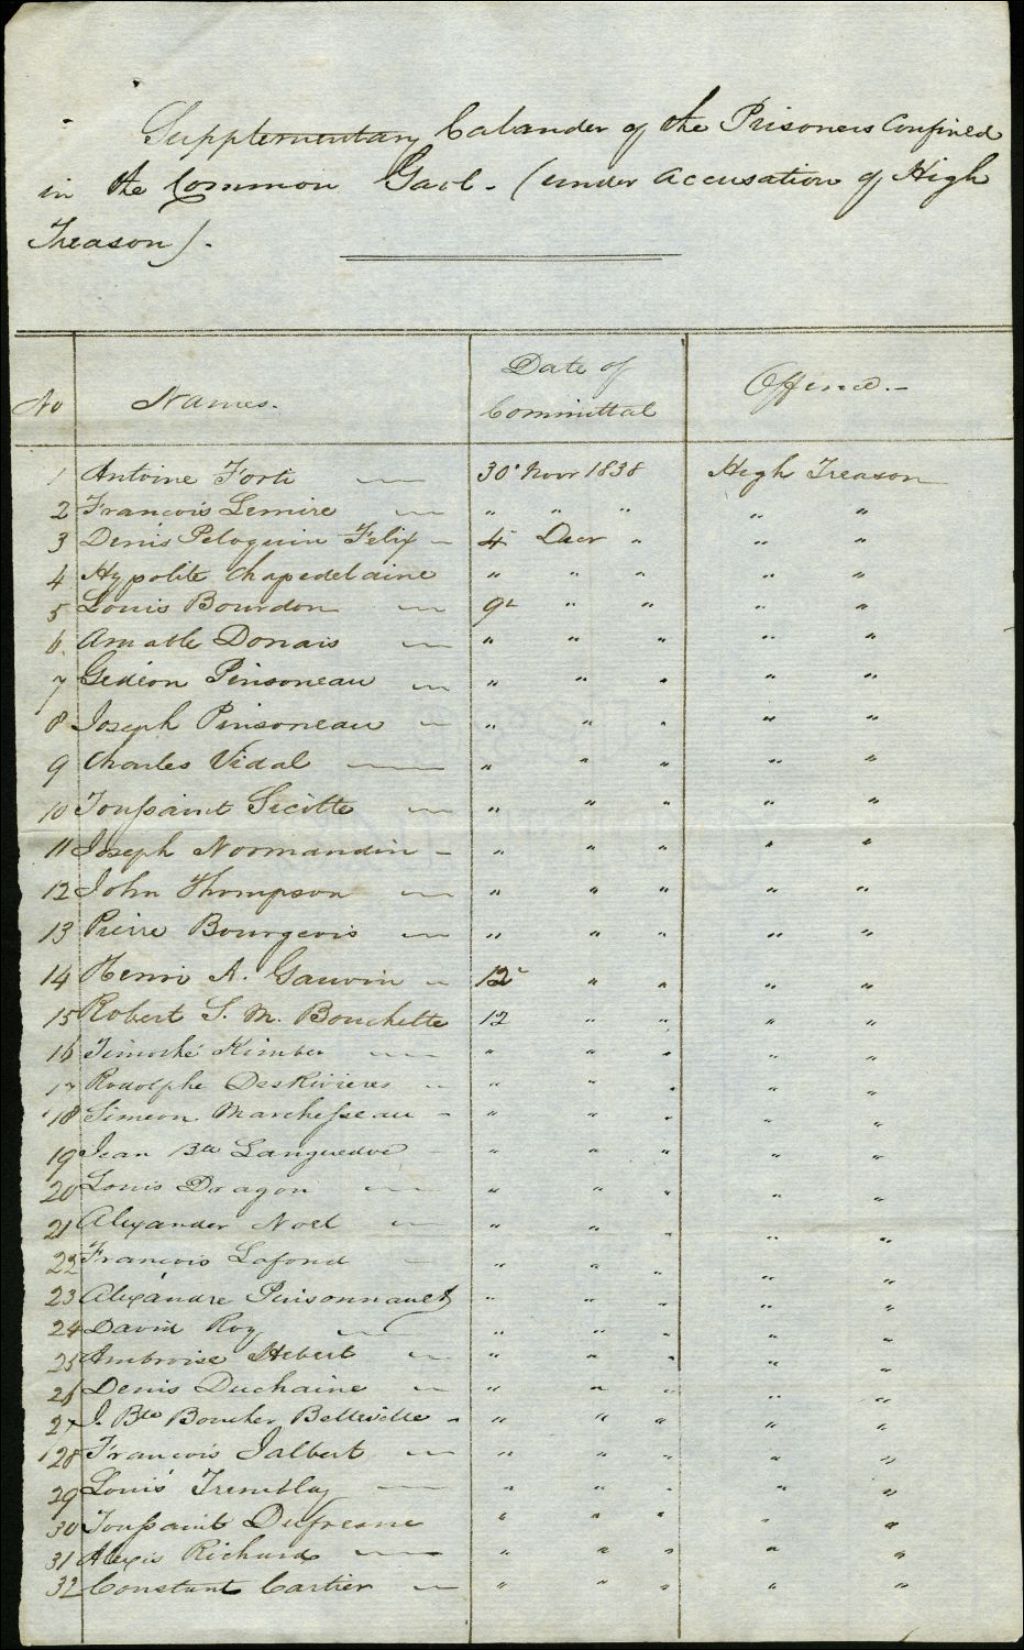 Supplementary Calander of the Prisoners Confined
in the Common Gaol - (under accusation of High
Treason). -
No Names. Date of Committal Offence. -
1 Antoine Forti 30' Novr 1838 High Treason
2 Francois Lemire " " " " "
3 Denis Peloquin Felix - 4 Decr " " "
4 Hypolite Chapedelaine " " " " "
5 Louis Bourdon 9 " " " "
6 Amable Donais " " " " "
7 Gedeon Pinsoneau " " " " "
8 Joseph Pinsoneau " " " " "
9 Charles Vidal " " " " "
10 Toussaint Sicotte " " " " "
11 Joseph Normandin - " " " " "
12 John Thompson " " " " "
13 Pierre Bourgeois " " " " "
14 Henri A. Gauvin 12 " " " "
15 Robert S. M. Bouchette 12 " " " "
16 Timothé Kimber " " " " "
17 Rodolphe DesRivieres " " " " "
18 Simeon Marchesseau - " " " " "
19 Jean Bte Languedoc " " " " "
20 Louis Dragon " " " " "
21 Alexander Noel " " " " "
22 Francois Lafond " " " " "
23 Alexandre Pinsonnault " " " " "
24 David Roy " " " " "
25 Ambroise Hebert " " " " "
26 Denis Duchaine " " " " "
27 J. Bte Boucher Belleville - " " " " "
28 Francois Jalbert " " " " "
29 Louis Tremblay " " " " "
30 Toussaint Dufresne " " " " "
31 Alexis Richard " " " " "
32 Constant Cartier " " " " "